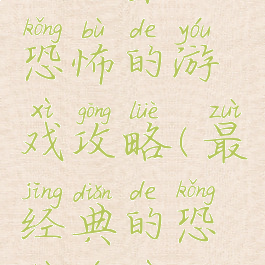 kǒng bù de yóu
恐怖的游
xì gōng lüè zuì
戏攻略(最
jīng diǎn de kǒng
经典的恐